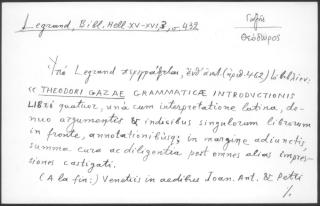 Legrand, Bibl. Hell. XV-XVI, 3, σ. 432
Γαζῆς
Θεόδωρος
Ὑπὸ Legrand περιγράφεται, (ἀριθ. 462)
« THEODORI GAZAE GRAMMATICAE INTRODUCTIONIS
LIBRI quatuor, unà cum interpretatione latina, de-
nuo argumentis & indicibus singulorum librorum
in fronte, annotationibusq; in margine adiunctis,
summa cura ac diligentia post omnes alias impres-
siones castigati.
(A la fin:) Venetiis in aedibus Ioan. Ant. & Petri